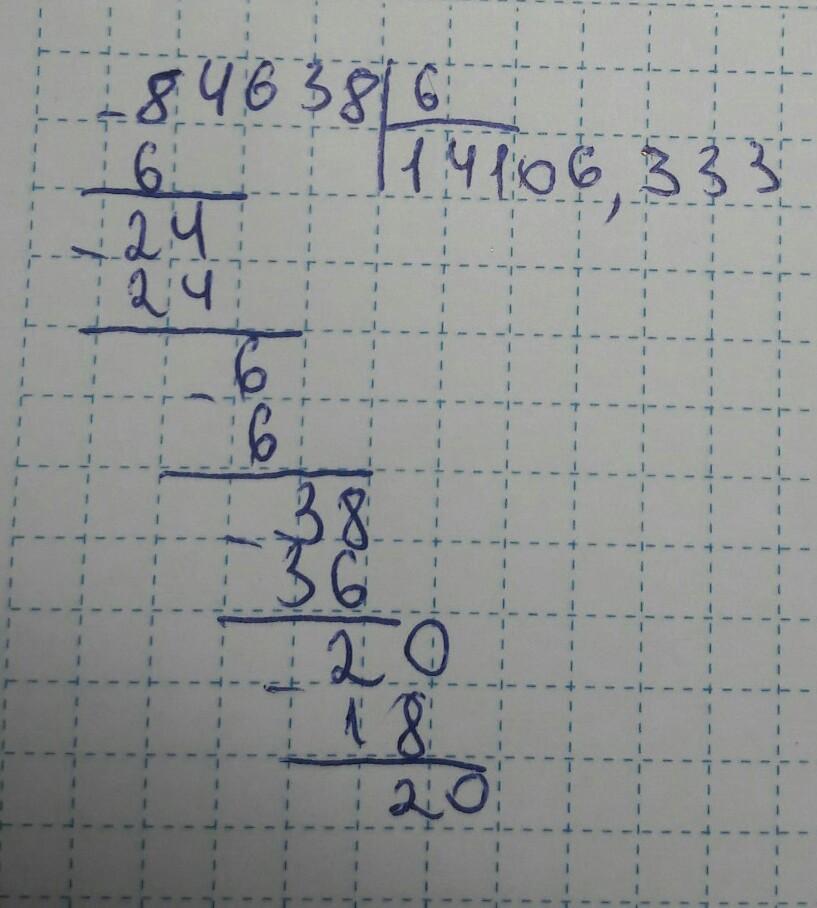 -84638|6
6 14106,333
-24
24
-6
6
-38
36
-20
18
20